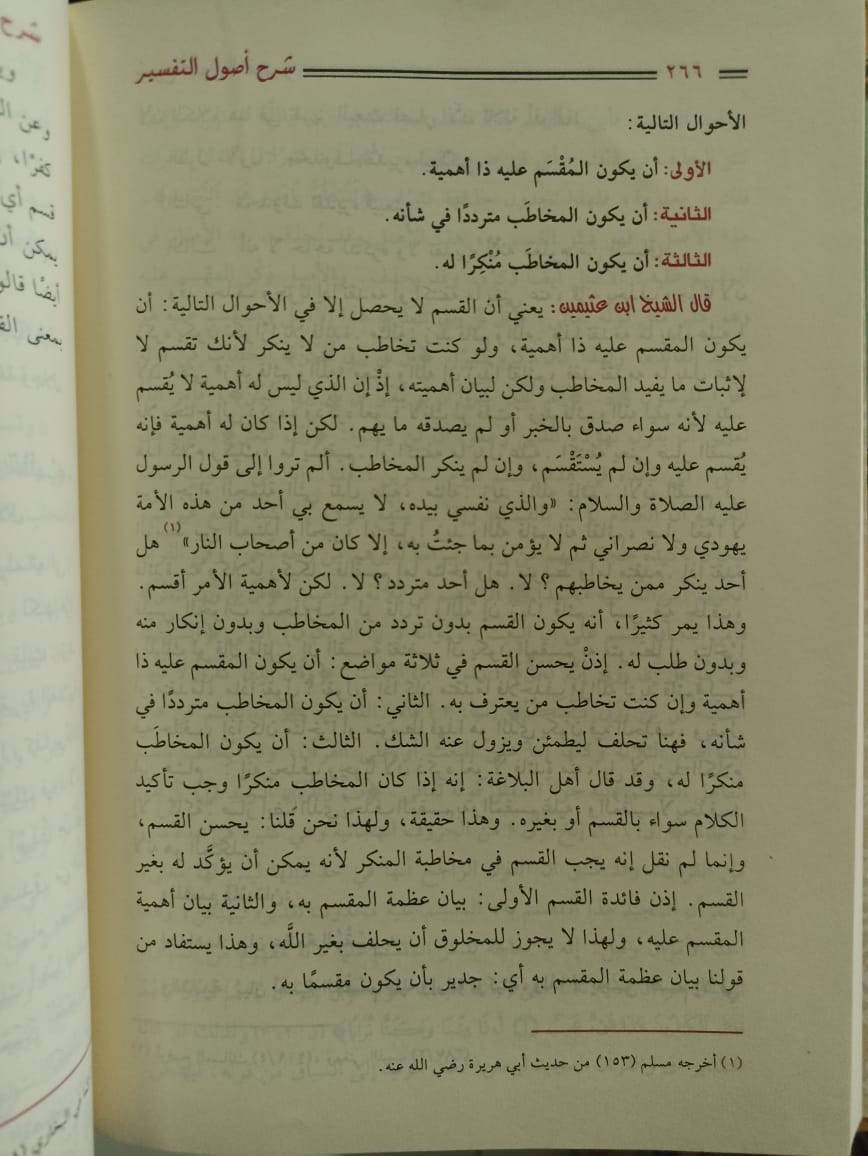 ٢٦٦ شرح أصول التفسير
الأحوال التالية:
الأولى: أن يكون المُقْسَم عليه ذا أهمية.
الثانية: أن يكون المخاطَب مترددًا في شأنه.
الثالثة: أن يكون المخاطَب مُنْكِرًا له.
قال الشيخ ابن عثيمين: يعني أن القسم لا يحصل إلا في الأحوال التالية: أن
يكون المقسم عليه ذا أهمية، ولو كنت تخاطب من لا ينكر لأنك تقسم لا
لإثبات ما يفيد المخاطب ولكن لبيان أهميته، إذْ إن الذي ليس له أهمية لا يُقسم
عليه لأنه سواء صدق بالخبر أو لم يصدقه ما يهم. لكن إذا كان له أهمية فإنه
يُقسم عليه وإن لم يُسْتَقْسَم، وإن لم ينكر المخاطب. ألم تروا إلى قول الرسول
عليه الصلاة والسلام: «والذي نفسي بيده، لا يسمع بي أحد من هذه الأمة
يهودي ولا نصراني ثم لا يؤمن بما جئتُ به، إلا كان من أصحاب النار»(١) هل
أحد ينكر ممن يخاطبهم؟ لا. هل أحد متردد؟ لا. لكن لأهمية الأمر أقسم.
وهذا يمر كثيرًا، أنه يكون القسم بدون تردد من المخاطب وبدون إنكار منه
وبدون طلب له. إذنْ يحسن القسم في ثلاثة مواضع: أن يكون المقسم عليه ذا
أهمية وإن كنت تخاطب من يعترف به. الثاني: أن يكون المخاطب مترددًا في
شأنه، فهنا تحلف ليطمئن ويزول عنه الشك. الثالث: أن يكون المخاطَب
منكرًا له، وقد قال أهل البلاغة: إنه إذا كان المخاطب منكرًا وجب تأكيد
الكلام سواء بالقسم أو بغيره. وهذا حقيقة، ولهذا نحن قَلنا: يحسن القسم،
وإنما لم نقل إنه يجب القسم في مخاطبة المنكر لأنه يمكن أن يؤكَّد له بغير
القسم. إذن فائدة القسم الأولى: بيان عظمة المقسم به، والثانية بيان أهمية
المقسم عليه، ولهذا لا يجوز للمخلوق أن يحلف بغير اللَّه، وهذا يستفاد من
قولنا بيان عظمة المقسم به أي: جدير بأن يكون مقسمًا به.
(١) أخرجه مسلم (١٥٣) من حديث أبي هريرة رضي الله عنه.